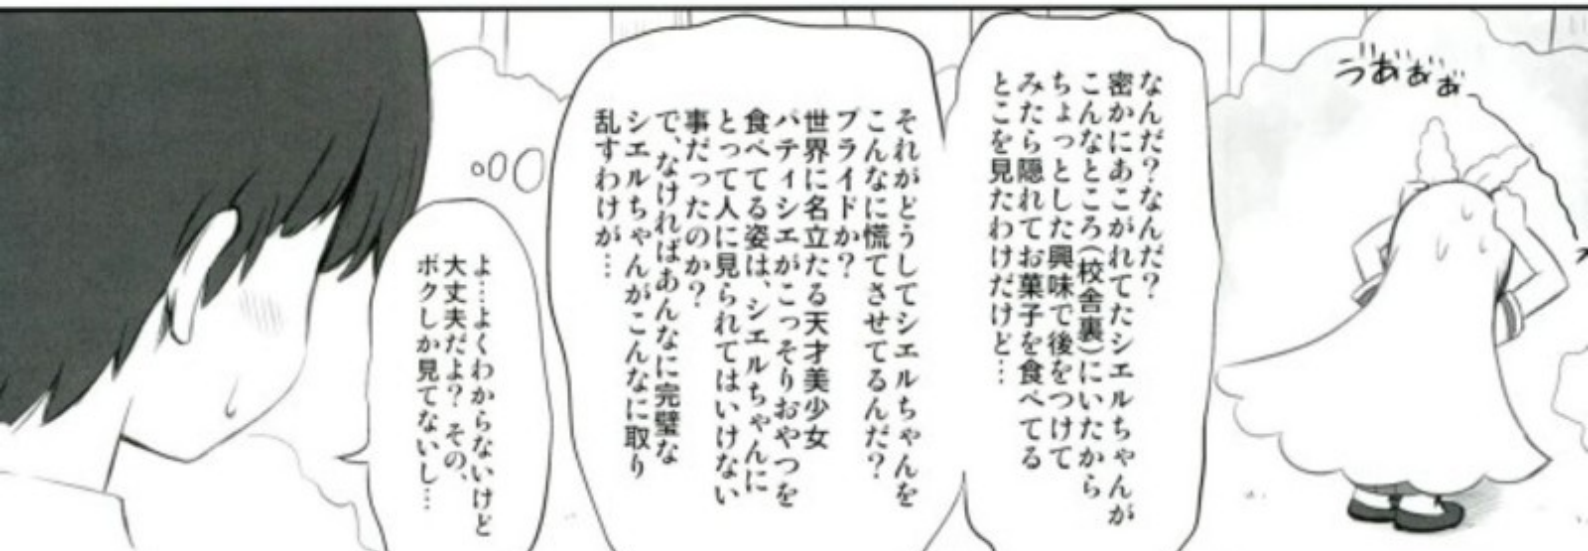 うあぁぁぁ
なんだ？なんだ？
密かにあこがれてたシエルちゃんが
こんなところ(校舎裏)にいたから
ちょっとした興味で後をつけて
みたら隠れてお菓子を食べてる
とこを見たわけだけど…
それがどうしてシエルちゃんを
こんなに慌てさせてるんだ？
プライドか？
世界に名立たる天才美少女
パティシエがこっそりおやつを
食べてる姿は、シエルちゃんに
とって人に見られてはいけない
事だったのか？
で、なければあんなに完璧な
シエルちゃんがこんなに取り
乱すわけが…
よ…よくわからないけど
大丈夫だよ？その、
ボクしか見てないし…